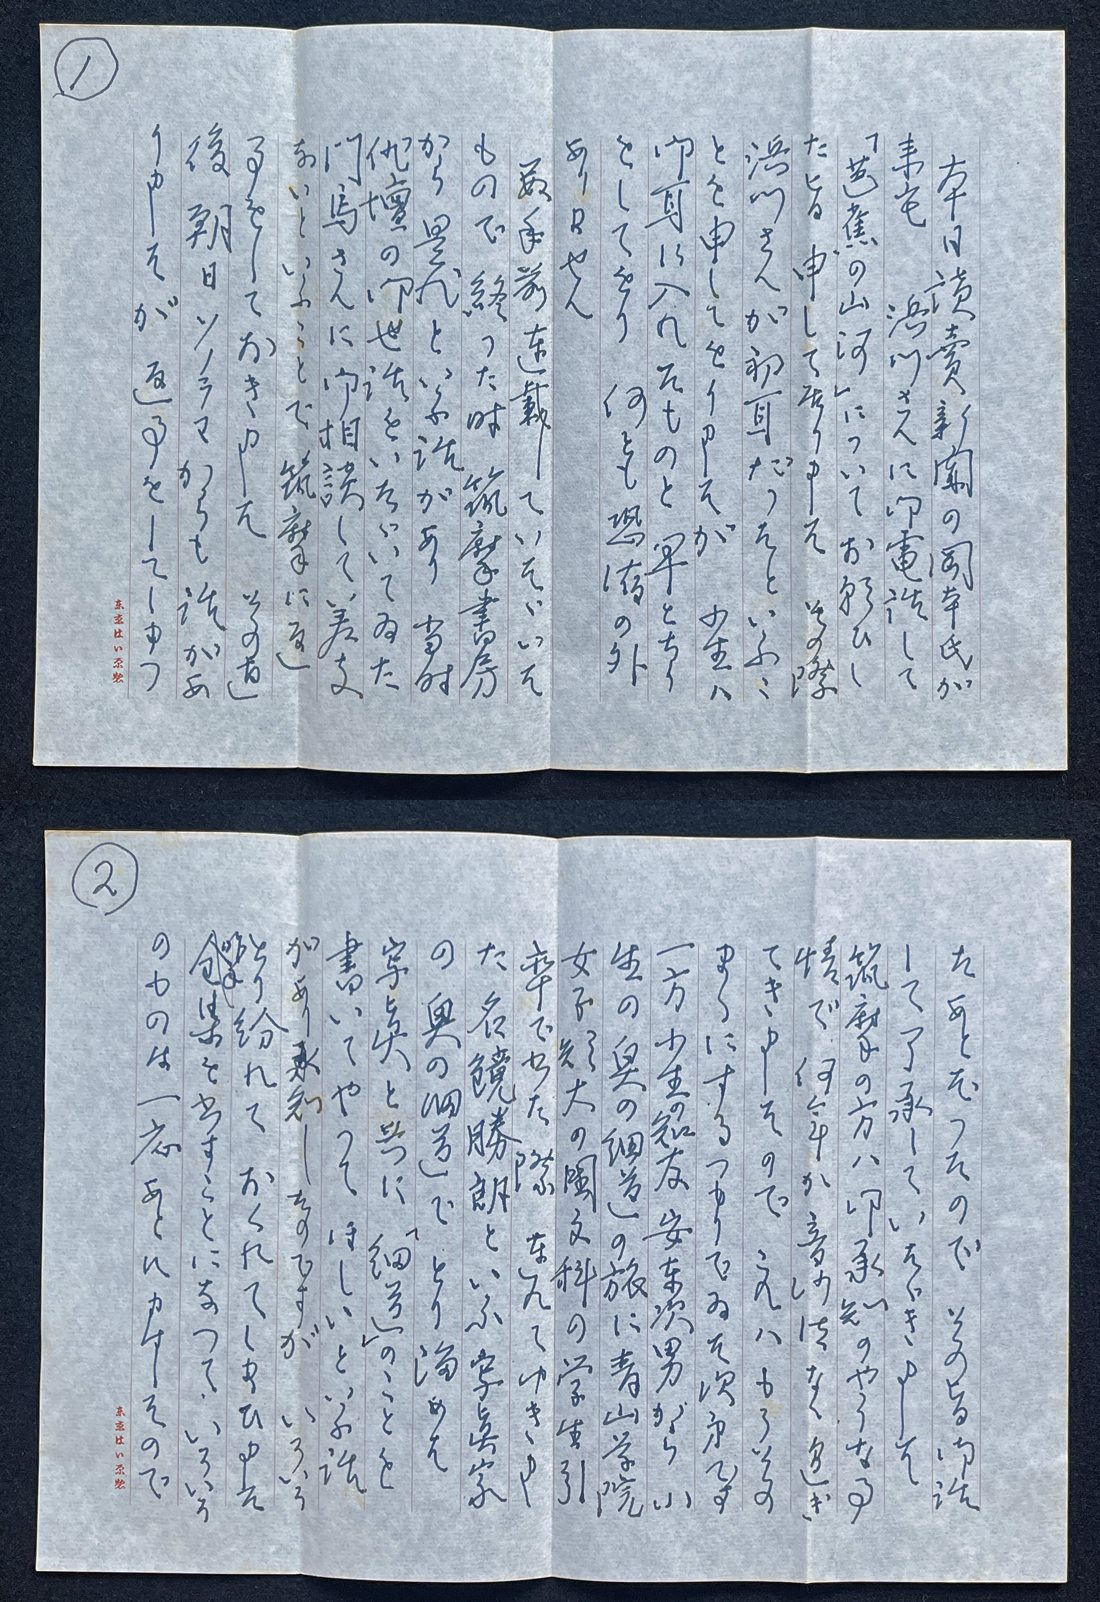 1
本日讀賣新聞の岡本氏が
来宅 浜川さんに御電話して
「芭蕉の山河」についてお願ひし
た旨申して居りました その際
浜川さんが初耳だつたといふこ
とを申してをりましたが 小生ハ
御耳に入れたものと早とちり
をしてをり 何とも恐縮の外
ありません
数年前連載していたゞいた
もので 終つた時 筑摩書房
から是非といふ話があり 当時
俳壇の御世話をいたゞいてゐた
門馬さんに御相談して 差支
ないといふことで 筑摩に返
事をしておきました その直
後 朝日ソノラマからも話があ
りましたが 返事をしてしまつ
2
たあとだつたので その旨御話
して了承していたゞきました
筑摩の方ハ御承知のやうな事
情で 何年か音沙汰なく過ぎ
てきましたので これハもうその
まゝにするつもりでゐた次第です
一方小生の知友 安東次男がら小
生の奥の細道の旅に青山学院
女子短大の国文科の学生引
率で出た際 連れてゆきまし
た名鏡勝朗といふ写眞家
の奥の細道でとり溜めた
写眞と共に「細道」のことを
書いてやつてほしいといふ話
があり承知したのですが いろいろ
とり紛れて おくれてしまひました
昨年全集を出すことになつて いろいろ
のものは一応あとにまはしたので